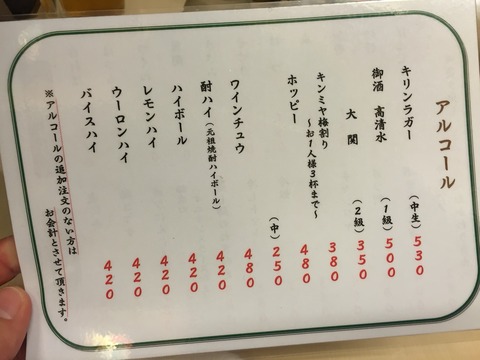 アルコール
キリンラガー（中生）530
御酒 高清水（1級）500
大関（2級）350
キンミヤ梅割り 380
～お1人様3杯まで～
ホッピー 480
（中）250
ワインチュウ 480
酎ハイ（元祖焼酎ハイボール）420
ハイボール 420
レモンハイ 420
ウーロンハイ 420
バイスハイ 420
※アルコールの追加注文のない方は
お会計とさせて頂きます。